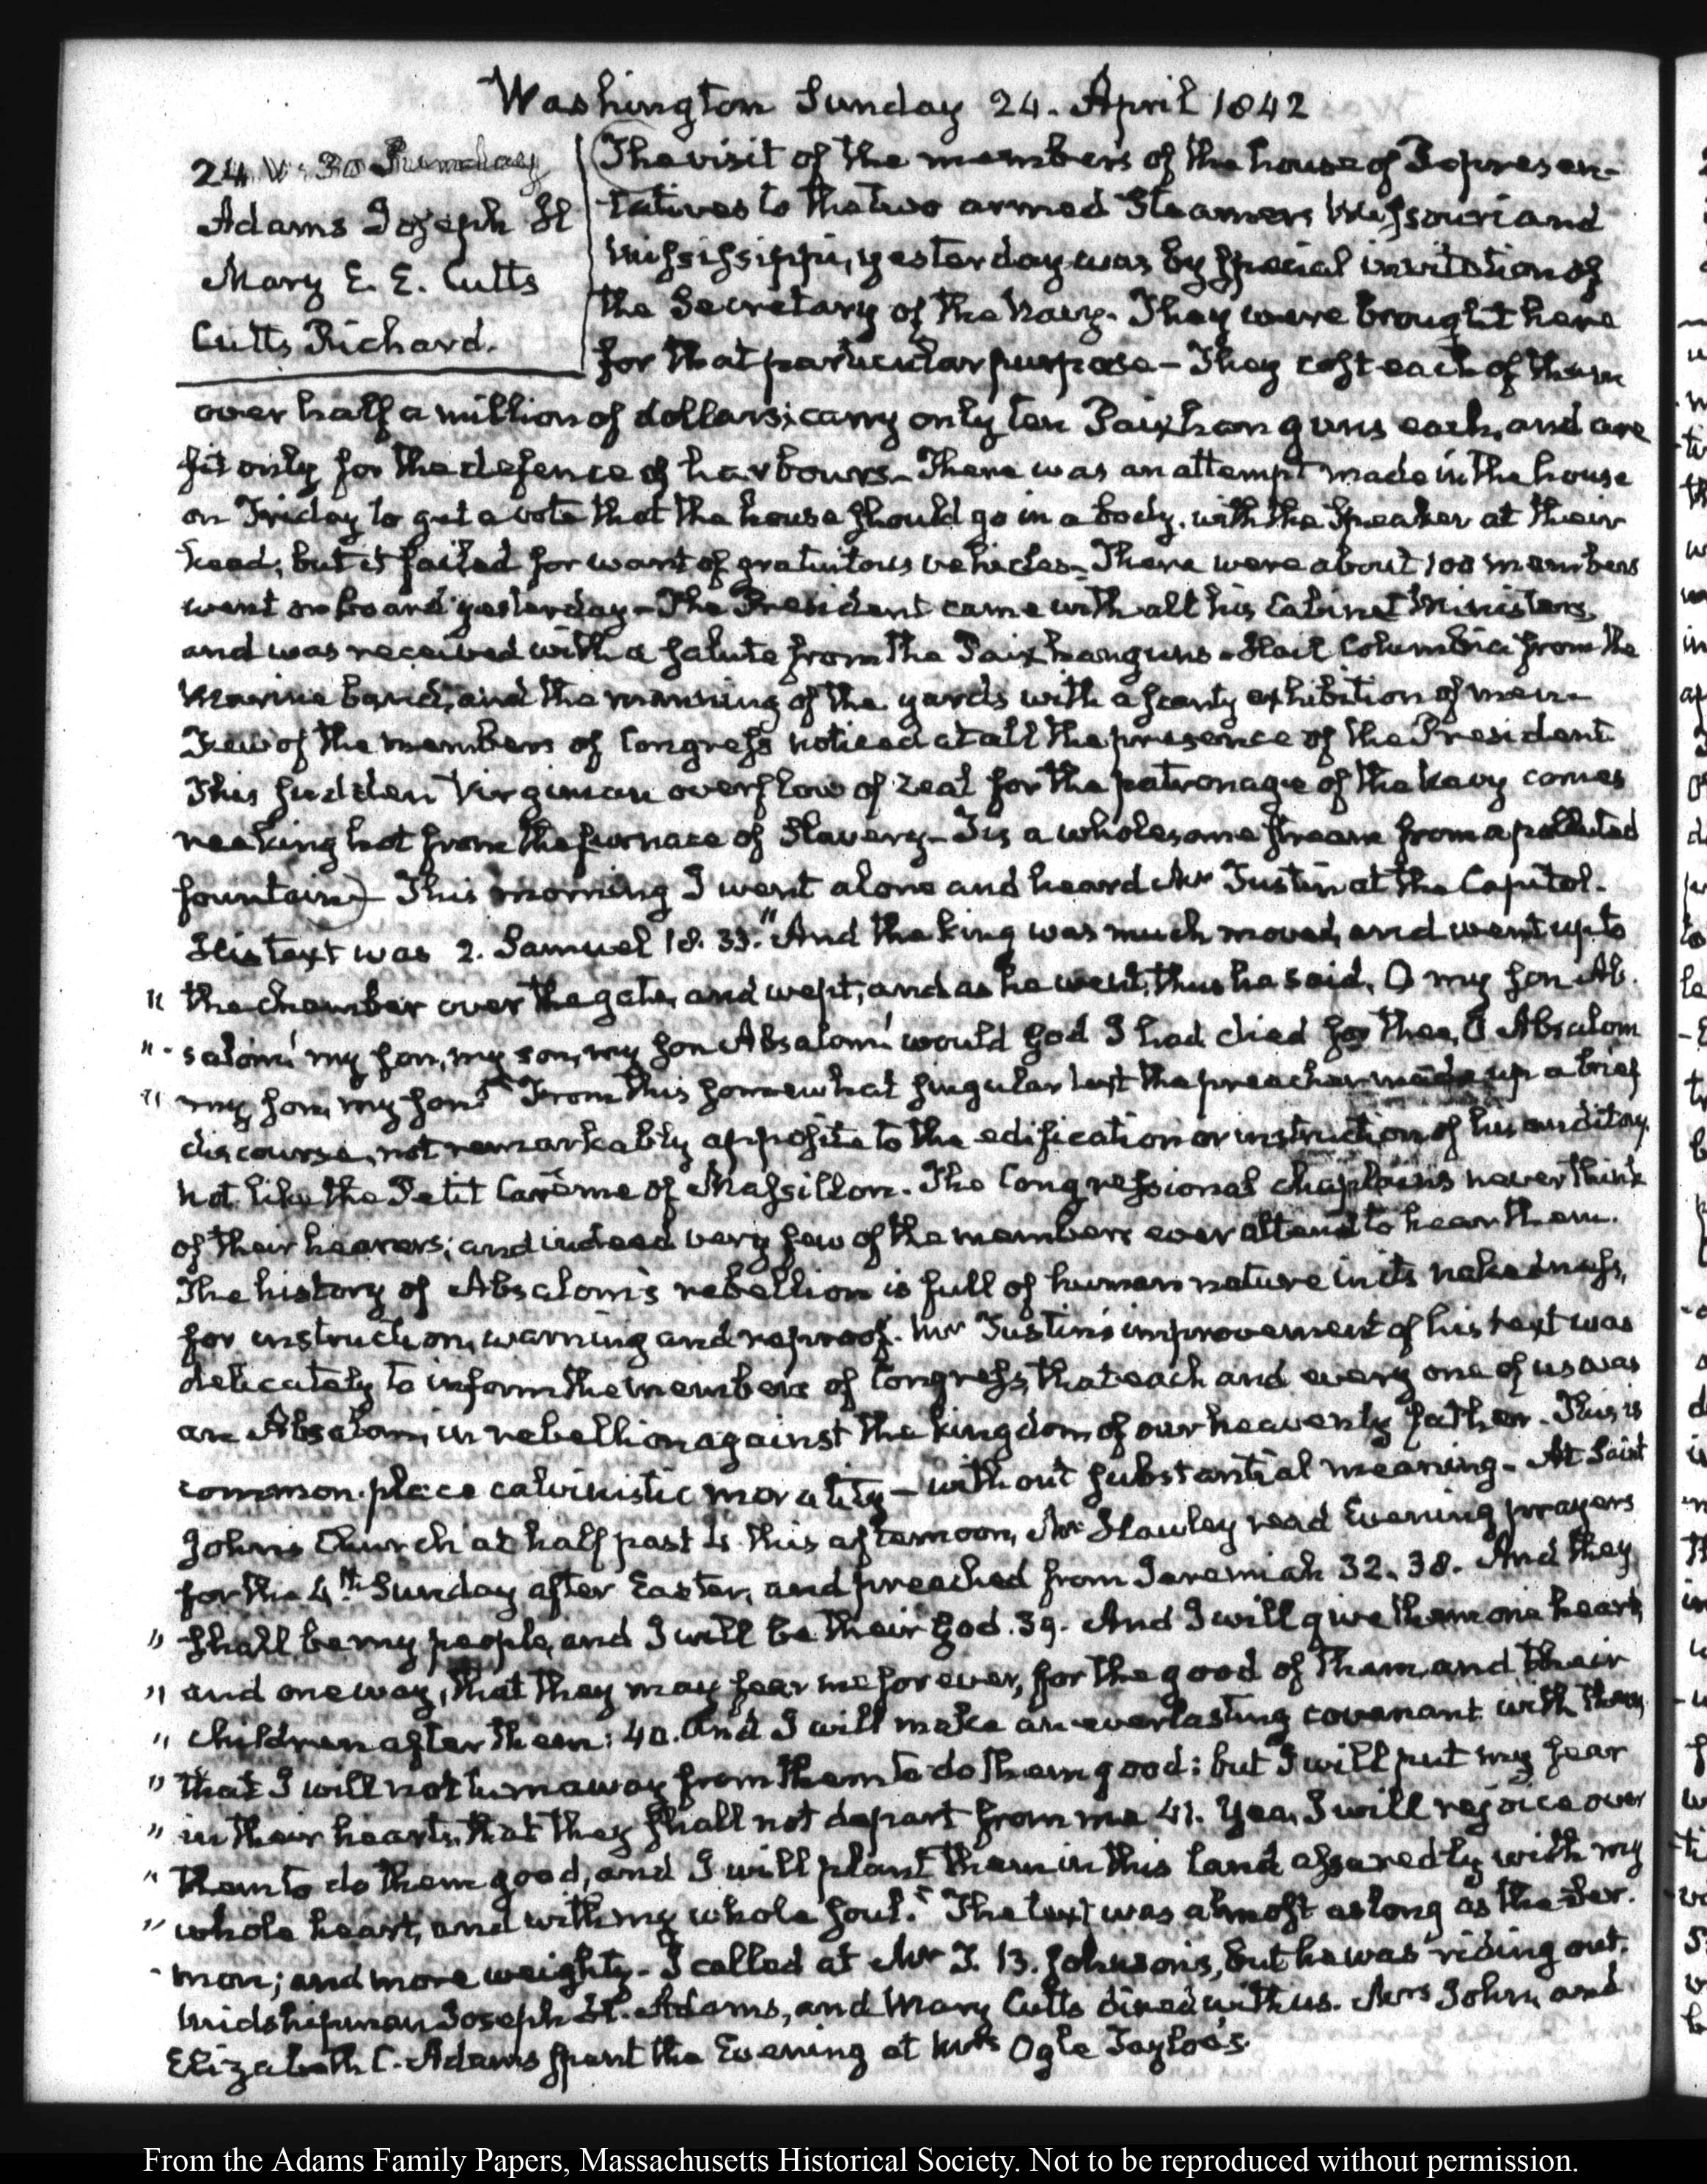 Washington Sunday 24. April 1842
24. V: 30 Sunday
Adams Joseph H
Mary E. E. Cutts
Cutts Richard.
The visit of the members of the house of Represen-
tatives to the two armed Steamers Missouri and
Mississippi, yesterday was by special invitation of
the Secretary of the Navy. They were brought here
for that particular purpose – They cost each of them
over half a million of dollars; carry only ten Paixhan guns each, and are
fit only for the defence of harbours – There was an attempt made in the house
on Friday to get a vote that the house should go in a body, with the Speaker at their
head, but it failed for want of gratuitous vehicles – There were about 100 members
went on board yesterday – The President came with all his Cabinet Ministers,
and was received with a salute from the Paixhan guns – Hail Columbia from the
Marine band, and the manning of the yards with a scanty exhibition of men –
Few of the members of Congress noticed at all the presence of the President
This sudden Virginian overflow of zeal for the patronage of the Navy comes
reeking hot from the furnace of Slavery – Tis a wholesome stream from a polluted
fountain) – This morning I went alone and heard Mr Tustin at the Capitol.
His text was 2. Samuel 18. 33. "And the king was much moved, and went up to
" the chamber over the gate, and wept; and as he went, thus he said, O my son Ab-
" -salom! my son, my son, my son Absalom! would God I had died for thee, O Absalom
" my son, my son!" From this somewhat singular text the preacher made up a brief
discourse, not remarkably apposite to the edification or instruction of his auditory.
not like the Petit Carême of Massillon. The Congressional chaplains never think
of their hearers; and indeed very few of the members ever attend to hear them.
The history of Absalom's rebellion is full of human nature in its nakedness,
for instruction, warning and reproof. Mr Tustin's improvement of his text was
delicately to inform the members of Congress, that each and every one of us was
an Absalom, in rebellion against the kingdom of our heavenly father. This is
common-place calvinistic morality – without substantial meaning – At Saint
John's Church at half past 4 this afternoon, Mr Hawley read Evening prayers
for the 4th. Sunday after Easter, and preached from Jeremiah 32. 38. And they
" shall be my people, and I will be their God. 39. And I will give them one heart,
" and one way, that they may fear me for ever, for the good of them, and their
" children after them: 40. And I will make an everlasting covenant with them,
" that I will not turn away from them to do them good; but I will put my fear
" in their hearts, that they shall not depart from me 41. Yea, I will rejoice over
" them to do them good, and I will plant them in this land assuredly with my
" whole heart, and with my whole soul." The text was almost as long as the Ser-
- mon; and more weighty – I called at Mr J. B. Johnson's, but he was riding out.
Midshipman Joseph H. Adams, and Mary Cutts dined with us. Mrs John, and
Elizabeth C. Adams spent the Evening at Mrs Ogle Tayloe's.
From the Adams Family Papers, Massachusetts Historical Society. Not to be reproduced without permission.